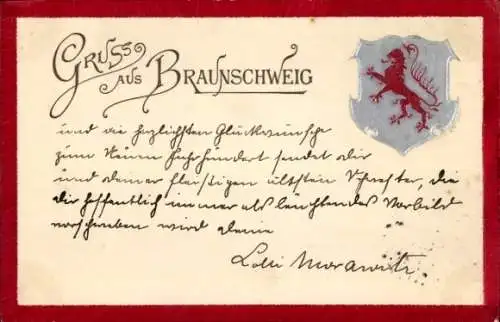 GRUSS
AUS BRAUNSCHWEIG
und die herzlichsten Glückwünsche
zum Neuen Jahrhundert sendet dir
und deiner fleißigen ältsten Schwester, die
dir hoffentlich immer als leuchtendes Vorbild
vorschweben wird deine
Lolli Morawitz